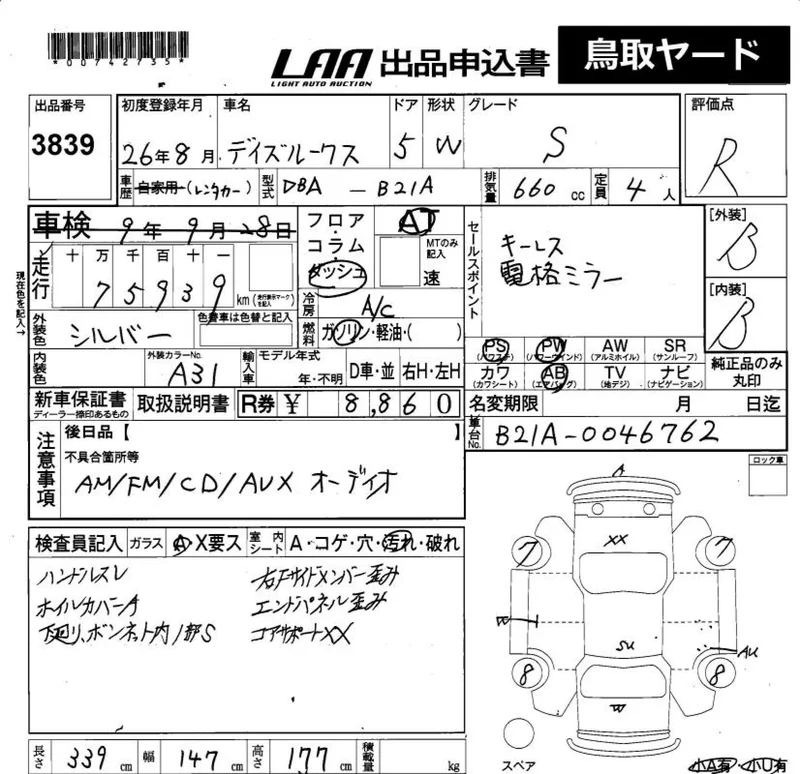 *00742735*
LAA 出品申込書 鳥取ヤード
LIGHT AUTO AUCTION
出品番号 初度登録年月 車名 ドア 形状 グレード 評価点
3839 26年8月 デイズルークス 5 W S R
車歴 自家用・(レンタカー) 型式 DBA - B21A 排気量 660 cc 定員 4 人
車検 9年9月28日 フロア・コラム・ダッシュ AT セールスポイント キーレス [外装] B
MTのみ記入 速 電格ミラー
現在色を記入→ 走行 十 万 千 百 十 一
75939 km (走行表示マークを記入) 冷房 A/C [内装] B
外装色 シルバー 色替車は色替と記入 燃料 ガソリン・軽油・( )
PS (パワステ) PW (パワーウインド) AW (アルミホイル) SR (サンルーフ)
内装色 外装カラーNo. A31 輸入車 モデル年式 年・不明 D車・並 右H・左H カワ (カワシート) AB (エアバッグ) TV (地デジ) ナビ (ナビゲーション) 純正品のみ丸印
新車保証書 ディーラー捺印あるもの 取扱説明書 R券 ¥ 8,860 名変期限 月 日迄
注意事項 後日品【 】 車台No. B21A-0046762
不具合箇所等 ロック車
AM/FM/CD/AUX オーディオ
検査員記入 ガラス A・X要ス 室内シート A・コゲ・穴・汚れ・破れ
ハンドルスレ 右Fサイドメンバー歪み
ホイルカバーA エンドパネル歪み
下廻り、ボンネット内1部S コアサポートXX
A
XX
7 7
W
SU
AU
8 8
W
スペア 小A有・小U有
長さ 339 cm 幅 147 cm 高さ 177 cm 積載量 kg